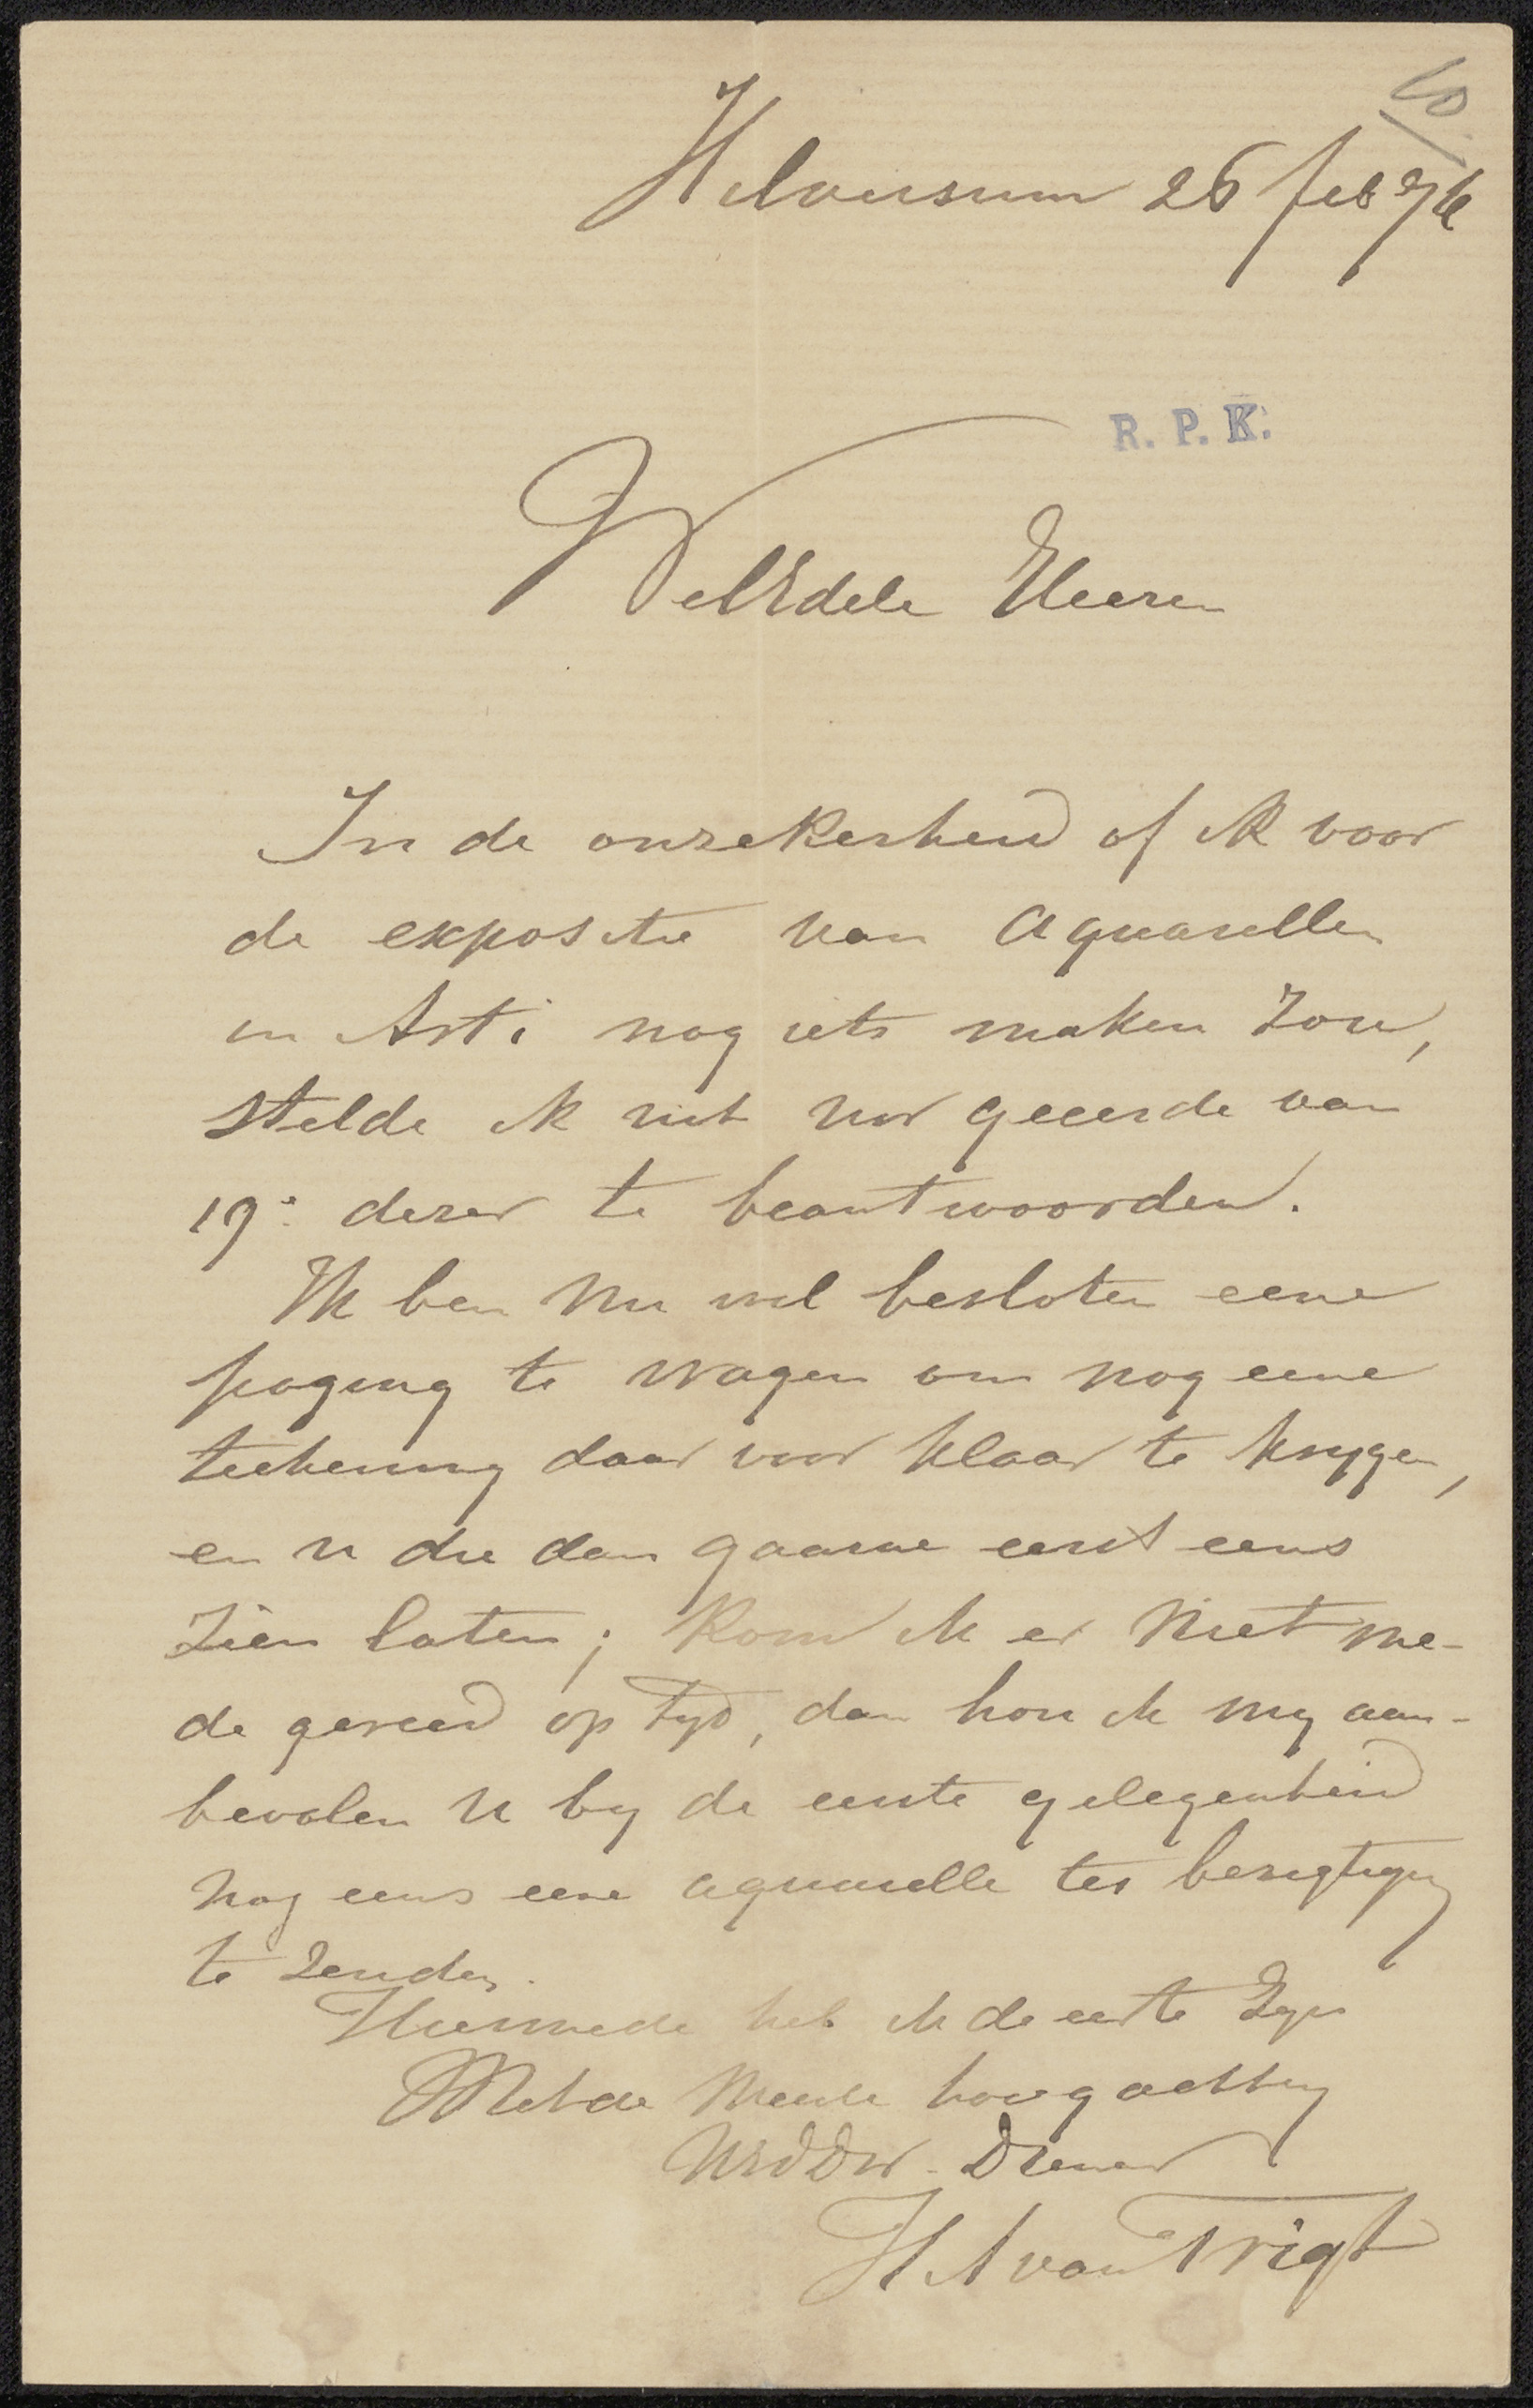 10
Hilversum 26 feb 76
R. P. K.
WelEdele Heeren
In de onzekerheid of ik voor
de expositie van aquarellen
in Arti nog iets maken zou,
stelde ik uit uw geeerde van
19e dezer te beantwoorden.
Ik ben nu wel besloten eene
poging te wagen om nog eene
teekening daar voor klaar te krygen,
en u die dan gaarne eerst eens
zien laten; kom ik er niet me-
de gereed op tyd, dan hou ik my aan-
bevolen u by de eerste gelegenheid
nog eens eene aquarelle ter bezigtiging
te zenden.
Hiermede heb ik de eer te zyn
Met de meeste hoogachting
UEdDw. Dienaar
H A van Trigt